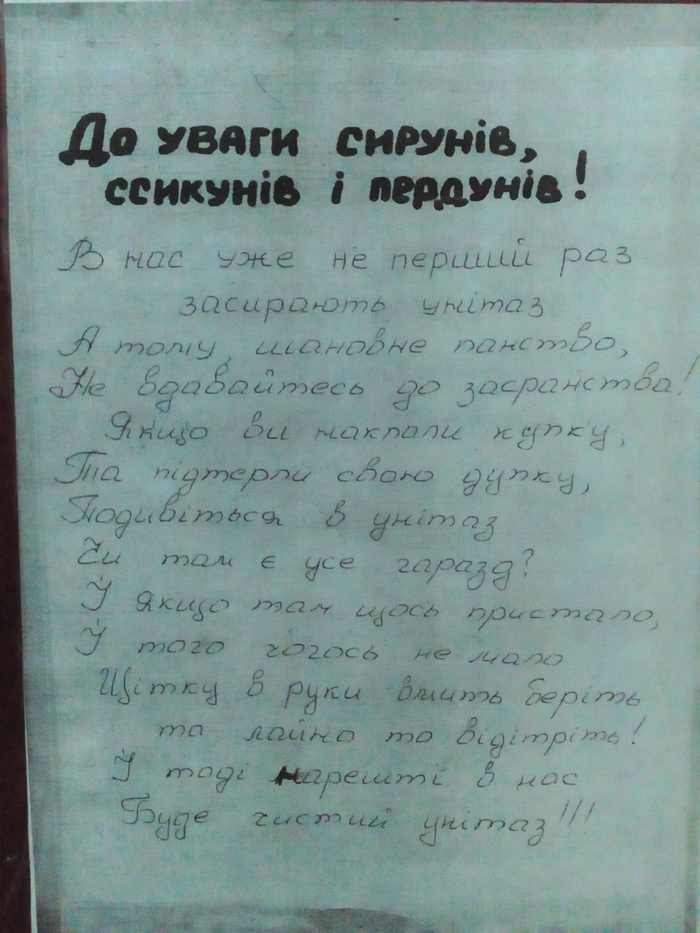 До уваги сирунів,
ссикунів і пердунів!
В нас уже не перший раз
засирають унітаз
А тому, шановне панство,
Не вдавайтесь до засранства!
Якщо ви наклали купку,
Та підтерли свою дупку,
Подивіться в унітаз
Чи там є усе гаразд?
І якщо там щось пристало,
І того чогось не мало
Щітку в руки вмить беріть
та лайно то відітріть!
І тоді нарешті в нас
Буде чистий унітаз!!!